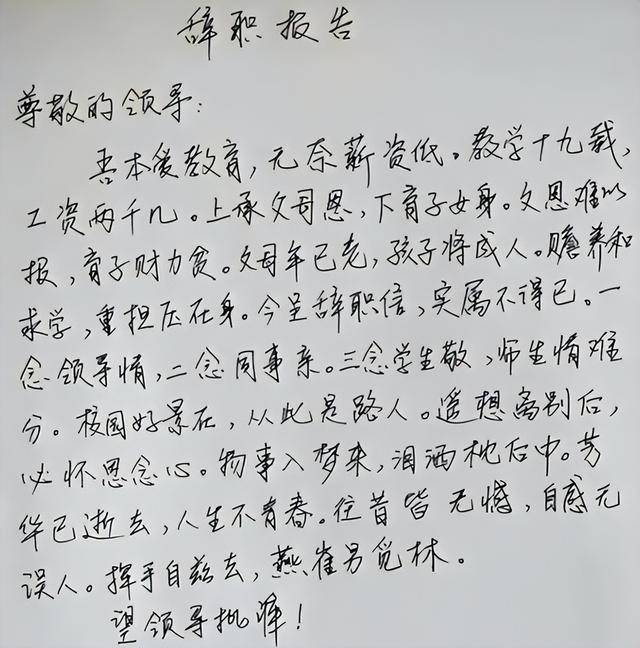 辞职报告
尊敬的领导：
吾本爱教育，无奈薪资低。教学十九载，
工资两千几。上承父母恩，下育子女身。父恩难以
报，育子财力贫。父母年已老，孩子将成人。赡养和
求学，重担压在身。今呈辞职信，实属不得已。一
念领导情，二念同事亲。三念学生敬，师生情难
分。校园好景在，从此是路人。遥想离别后，
必怀思念心。物事入梦来，泪洒枕后中。芳
华已逝去，人生不青春。往昔皆无憾，自感无
误人。挥手自兹去，燕雀另觅林。
望领导批准！